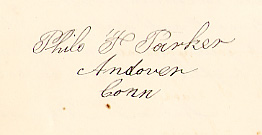 Philo H Parker
Andover
Conn